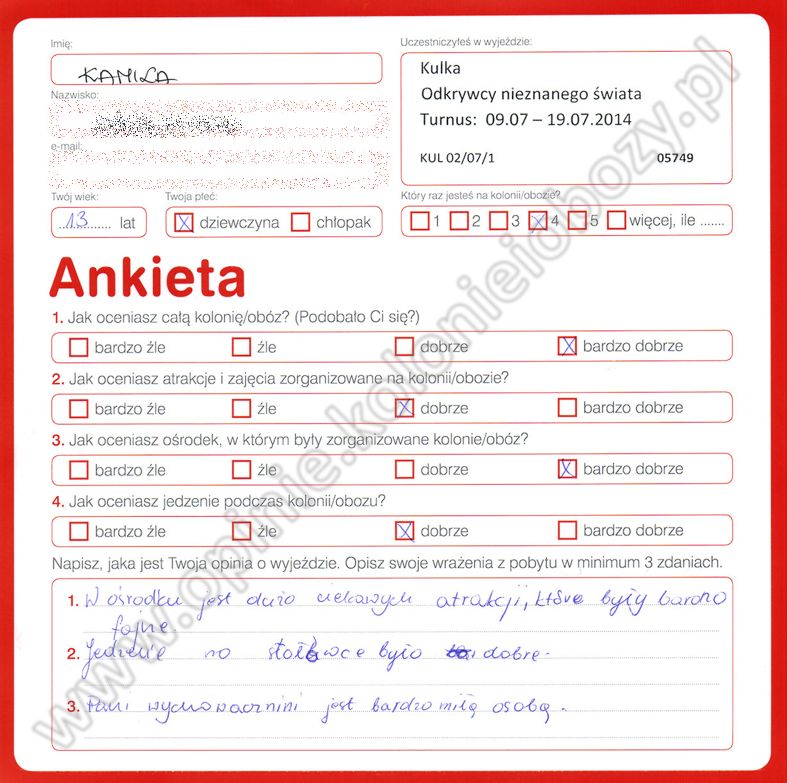 Imię:
KAMILA
Nazwisko:
e-mail:
Uczestniczyłeś w wyjeździe:
Kulka
Odkrywcy nieznanego świata
Turnus: 09.07 – 19.07.2014
KUL 02/07/1 05749
Twój wiek: Twoja płeć: Który raz jesteś na kolonii/obozie?
..13....... lat dziewczyna chłopak 1 2 3 4 5 więcej, ile .......
Ankieta
1. Jak oceniasz całą kolonię/obóz? (Podobało Ci się?)
bardzo źle źle dobrze bardzo dobrze
2. Jak oceniasz atrakcje i zajęcia zorganizowane na kolonii/obozie?
bardzo źle źle dobrze bardzo dobrze
3. Jak oceniasz ośrodek, w którym były zorganizowane kolonie/obóz?
bardzo źle źle dobrze bardzo dobrze
4. Jak oceniasz jedzenie podczas kolonii/obozu?
bardzo źle źle dobrze bardzo dobrze
Napisz, jaka jest Twoja opinia o wyjeździe. Opisz swoje wrażenia z pobytu w minimum 3 zdaniach.
1. W ośrodku jest dużo ciekawych atrakcji, które były bardzo
fajne.
2. Jedzenie na stołówce było dobre.
3. Pani wychowacznini jest bardzo miłą osobą.
www.opinie.kolonieiobozy.pl